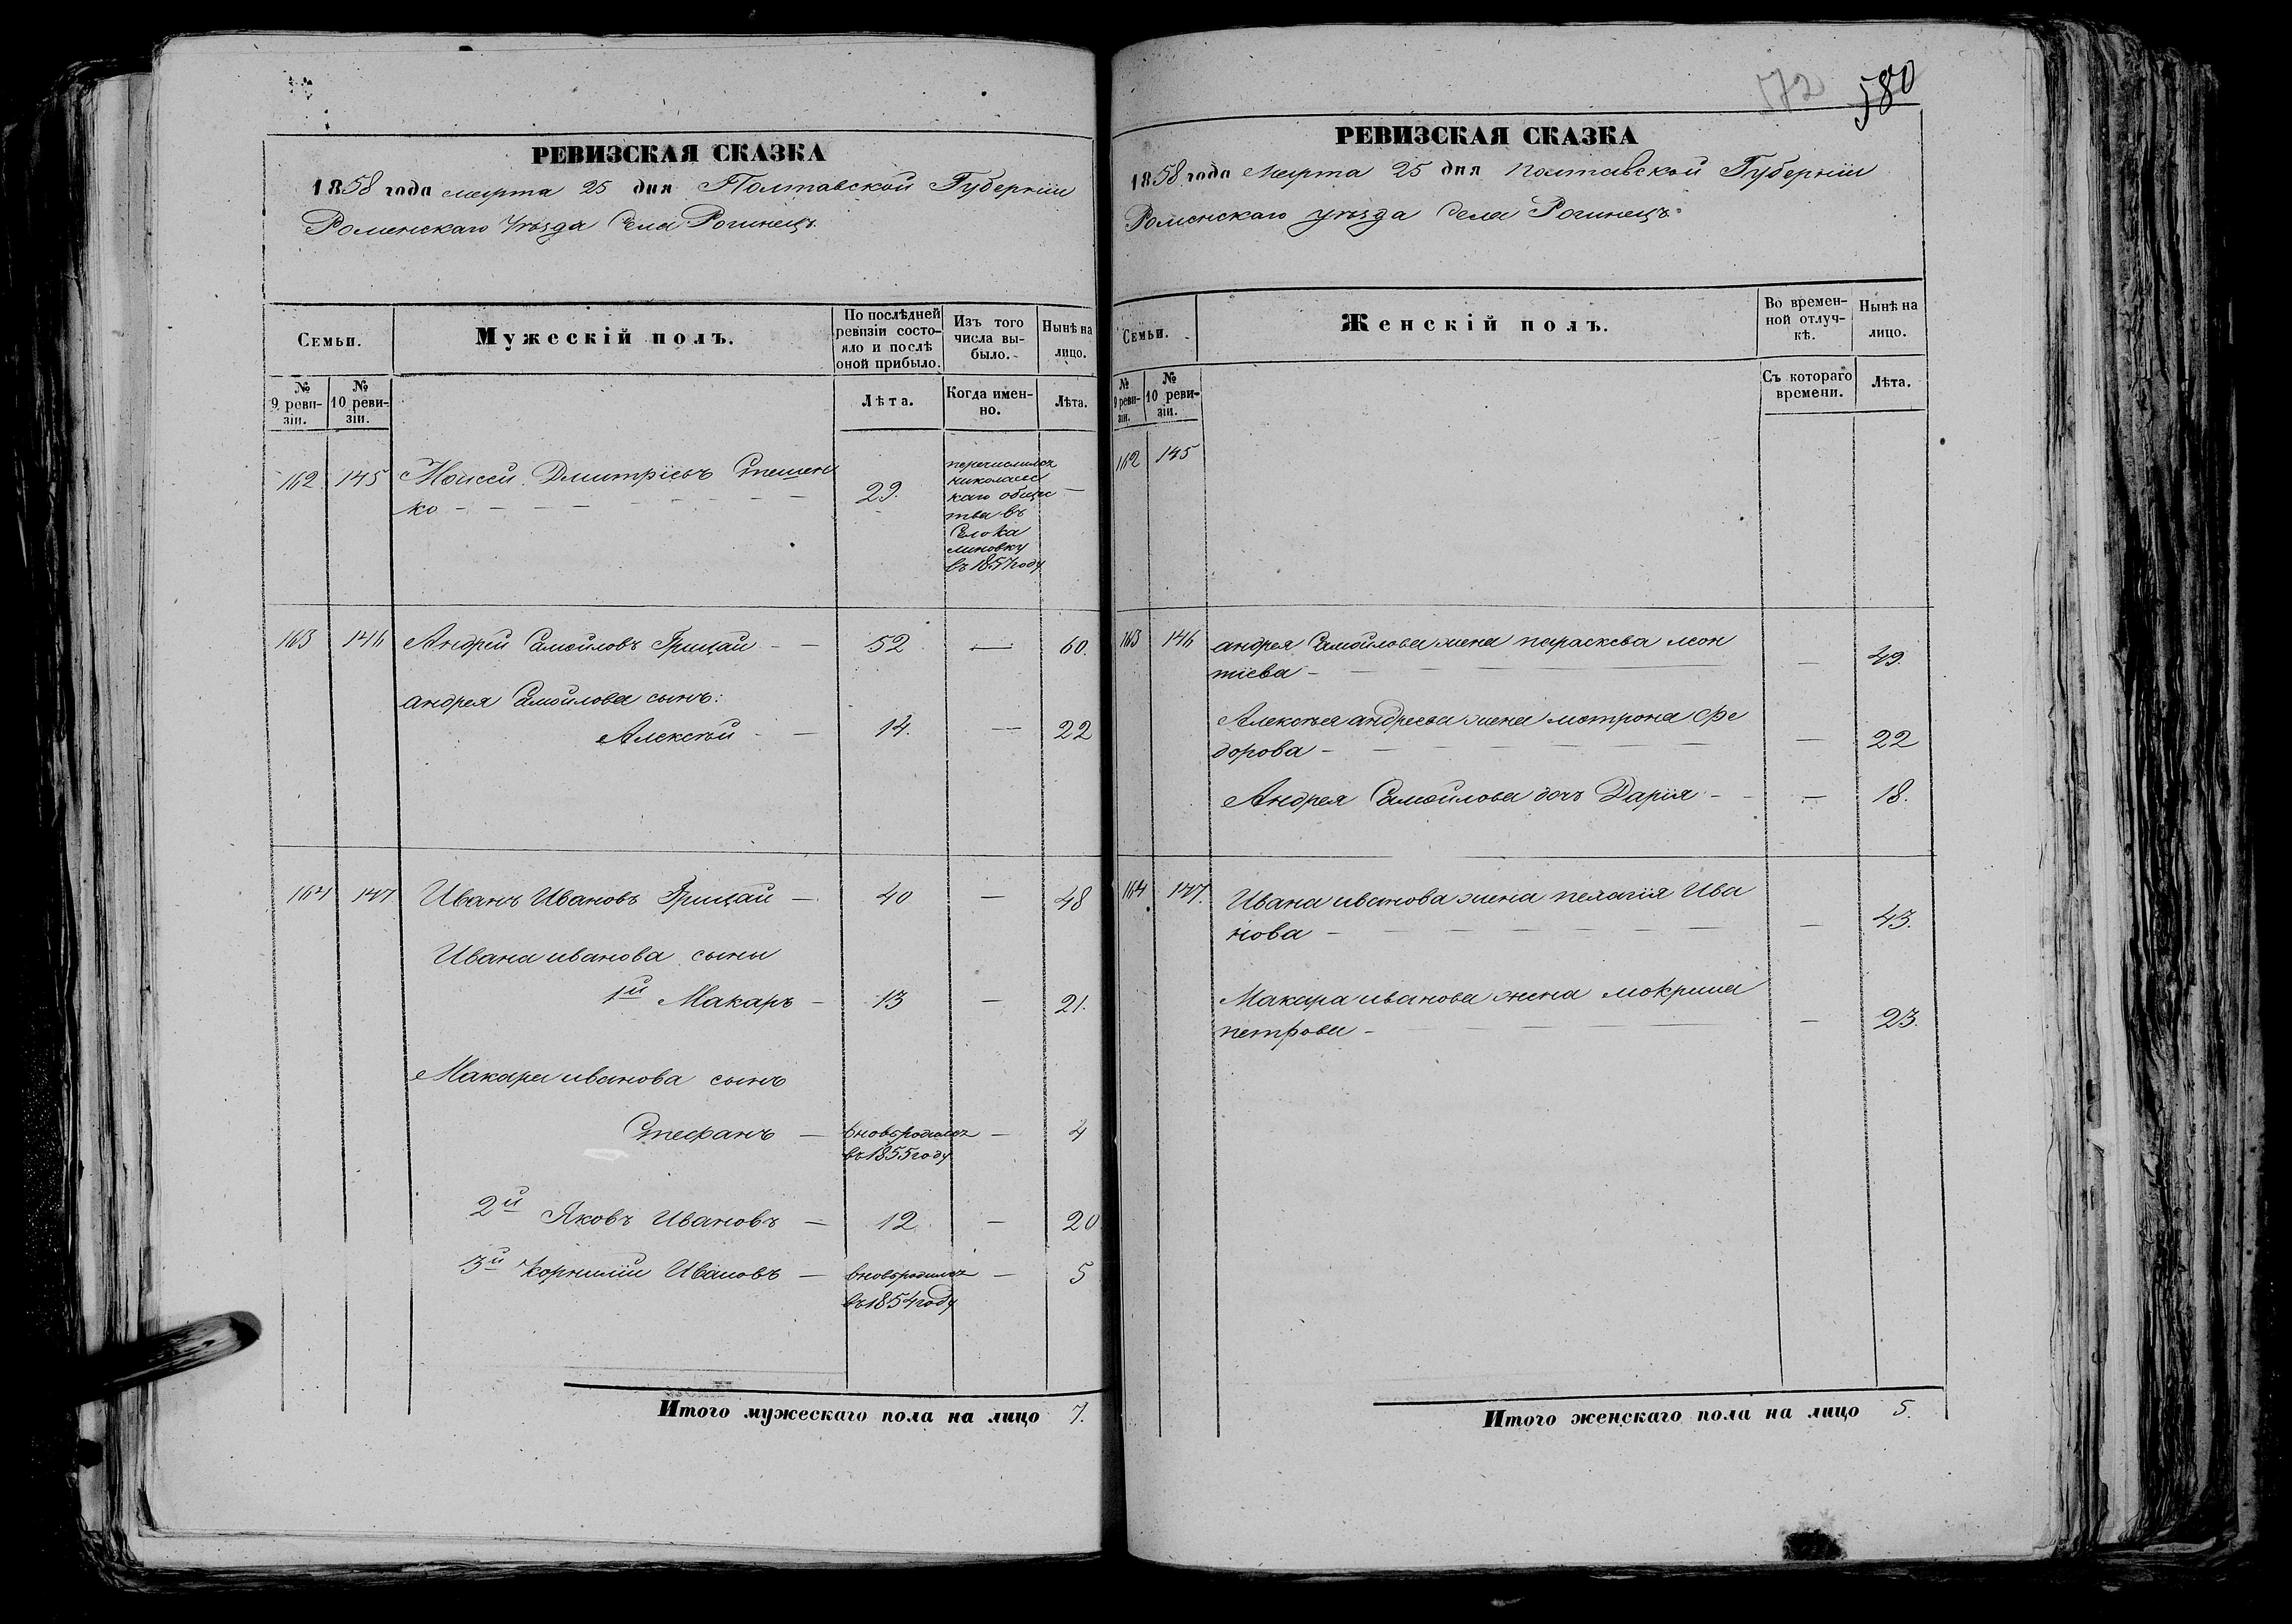 РЕВИЗСКАЯ СКАЗКА
1858 года марта 25 дня Полтавской Губерніи
Роменскаго Уѣзда Села Рогинецъ.
Семьи.
Мужескій полъ.
По послѣдней
ревизіи состо-
яло и послѣ
оной прибыло.
Изъ того
числа вы-
было.
Нынѣ на
лицо.
№
9 реви-
зіи.
№
10 реви-
зіи.
Лѣта.
Когда имен-
но.
Лѣта.
162 145 Моисей Дмитріевъ Степен
ко - 29.
перечислился
николаевс
каго общес
тва въ
въ 1857 году
163 146 Андрей Самойловъ Грицай - 52 — 60.
андрея Самойлова сынъ:
Алексѣй - 14. — 22
164 147 Иванъ Ивановъ Грицай — 40 — 48
Ивана иванова сыны
1й Макаръ - 13 — 21.
Макара иванова сынъ
Стефанъ — вновьродился — 4
въ 1855 году
2й Яковъ Ивановъ — 12. — 20
3й Корнилій Ивановъ — вновьродился — 5
въ 1854 году
Итого мужескаго пола на лицо 7.
172 580
РЕВИЗСКАЯ СКАЗКА
1858 года Марта 25 дня Полтавской Губерніи
Роменскаго уѣзда Села Рогинецъ
Семьи.
Женскій полъ.
Во времен-
ной отлуч-
кѣ.
Нынѣ на
лицо.
№
9 реви-
зіи.
№
10 реви-
зіи.
Съ котораго
времени.
Лѣта.
162 145
163 146 андрея Самойлова жена параскева леон
тіева - — 49.
Алексѣя андреева жена мотрона Фе
дорова - — 22
Андрея Самойлова дочь Дарія - — 18.
164 147. Ивана иванова жена пелагія Ива
нова - — 43.
Макара иванова жена мокрина
петрова - — 23.
Итого женскаго пола на лицо 5.